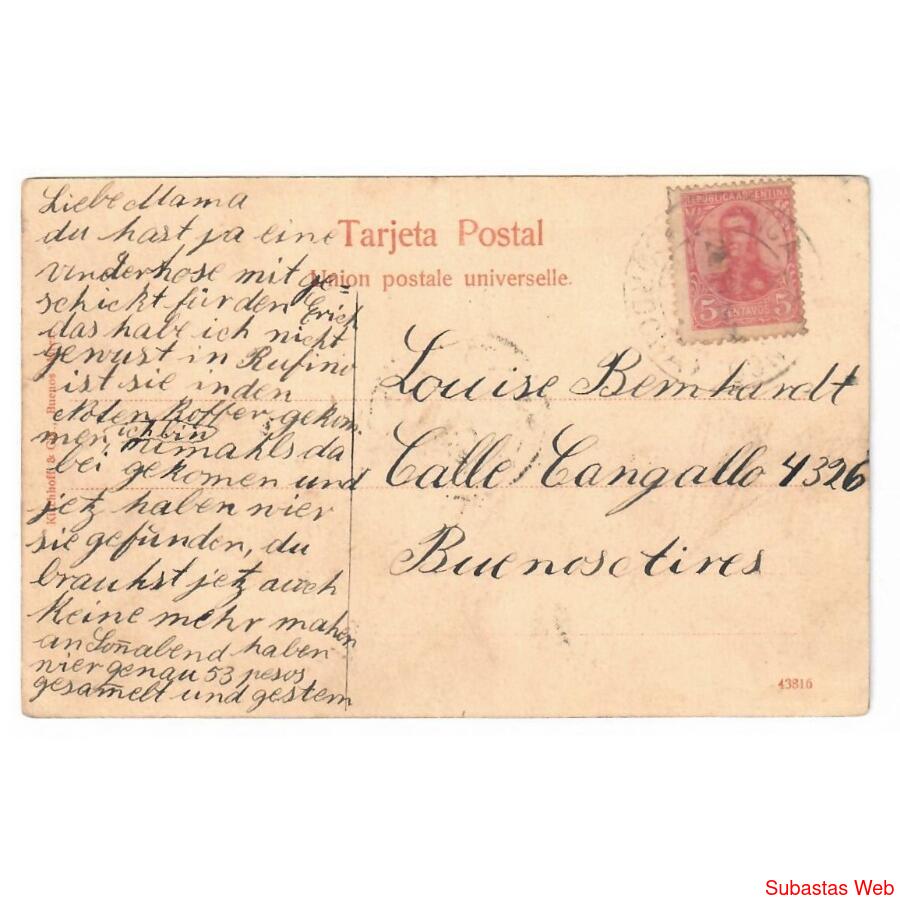 Liebe Mama
du hast ja eine
Vnderhose mit ge=
schickt für den Erich
das habe ich nicht
gewust in Rufino
ist sie in den
Noten Koffer gekom
men, ich bin nimahls da
bei gekomen und
jetz haben wier
sie gefunden, du
brauhst jetz auch
Keine mehr mahen
an Soñabend haben
wier genau 53 pesos
gesam̄elt und gestern
Tarjeta Postal
Union postale universelle.
REPUBLICA ARGENTINA
5 CENTAVOS 5
Louise Bernhardt
Calle Cangallo 4326
Buenos Aires
43816
Subastas Web